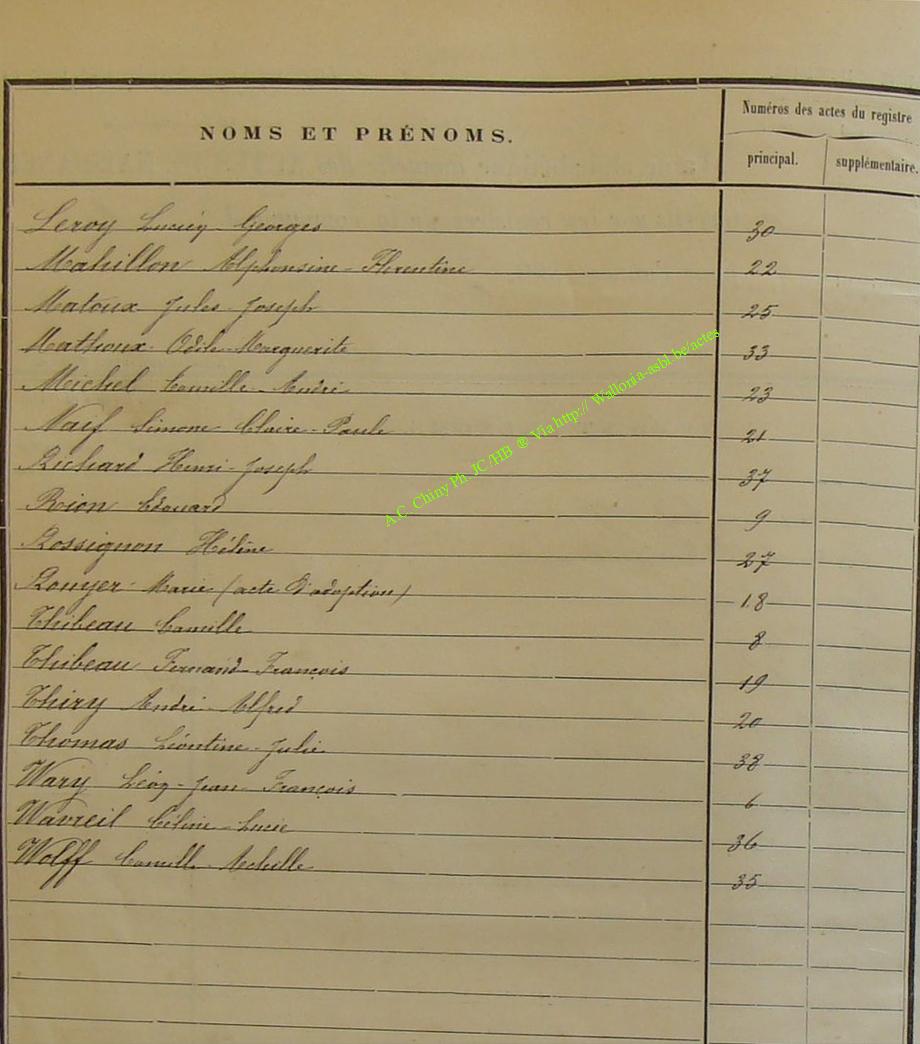 NOMS ET PRÉNOMS.
Numéros des actes du registre
principal. supplémentaire.
Leroy Lucien Georges 30
Mahillon Alphonsine-Florentine 22
Matoux Jules-Joseph 25
Mathoux Odile-Marguerite 33
Michel Camille-André 23
Naif Simone Claire-Paule 21
Richard Henri-Joseph 37
Rion Edouard 9
Rossignon Hélène 27
Rouyer Marie (acte d'adoption) 18
Thibeau Camille 8
Thibeau Fernand-François 19
Thiry André-Alfred 20
Thomas Léontine-Julie 38
Wary Léon-Jean-François 6
Wavreil Céline-Lucie 36
Wolff Camille-Achille 35
A.C. Chiny Ph. JC /HB ® Via http:// Wallonia-asbl.be/actes